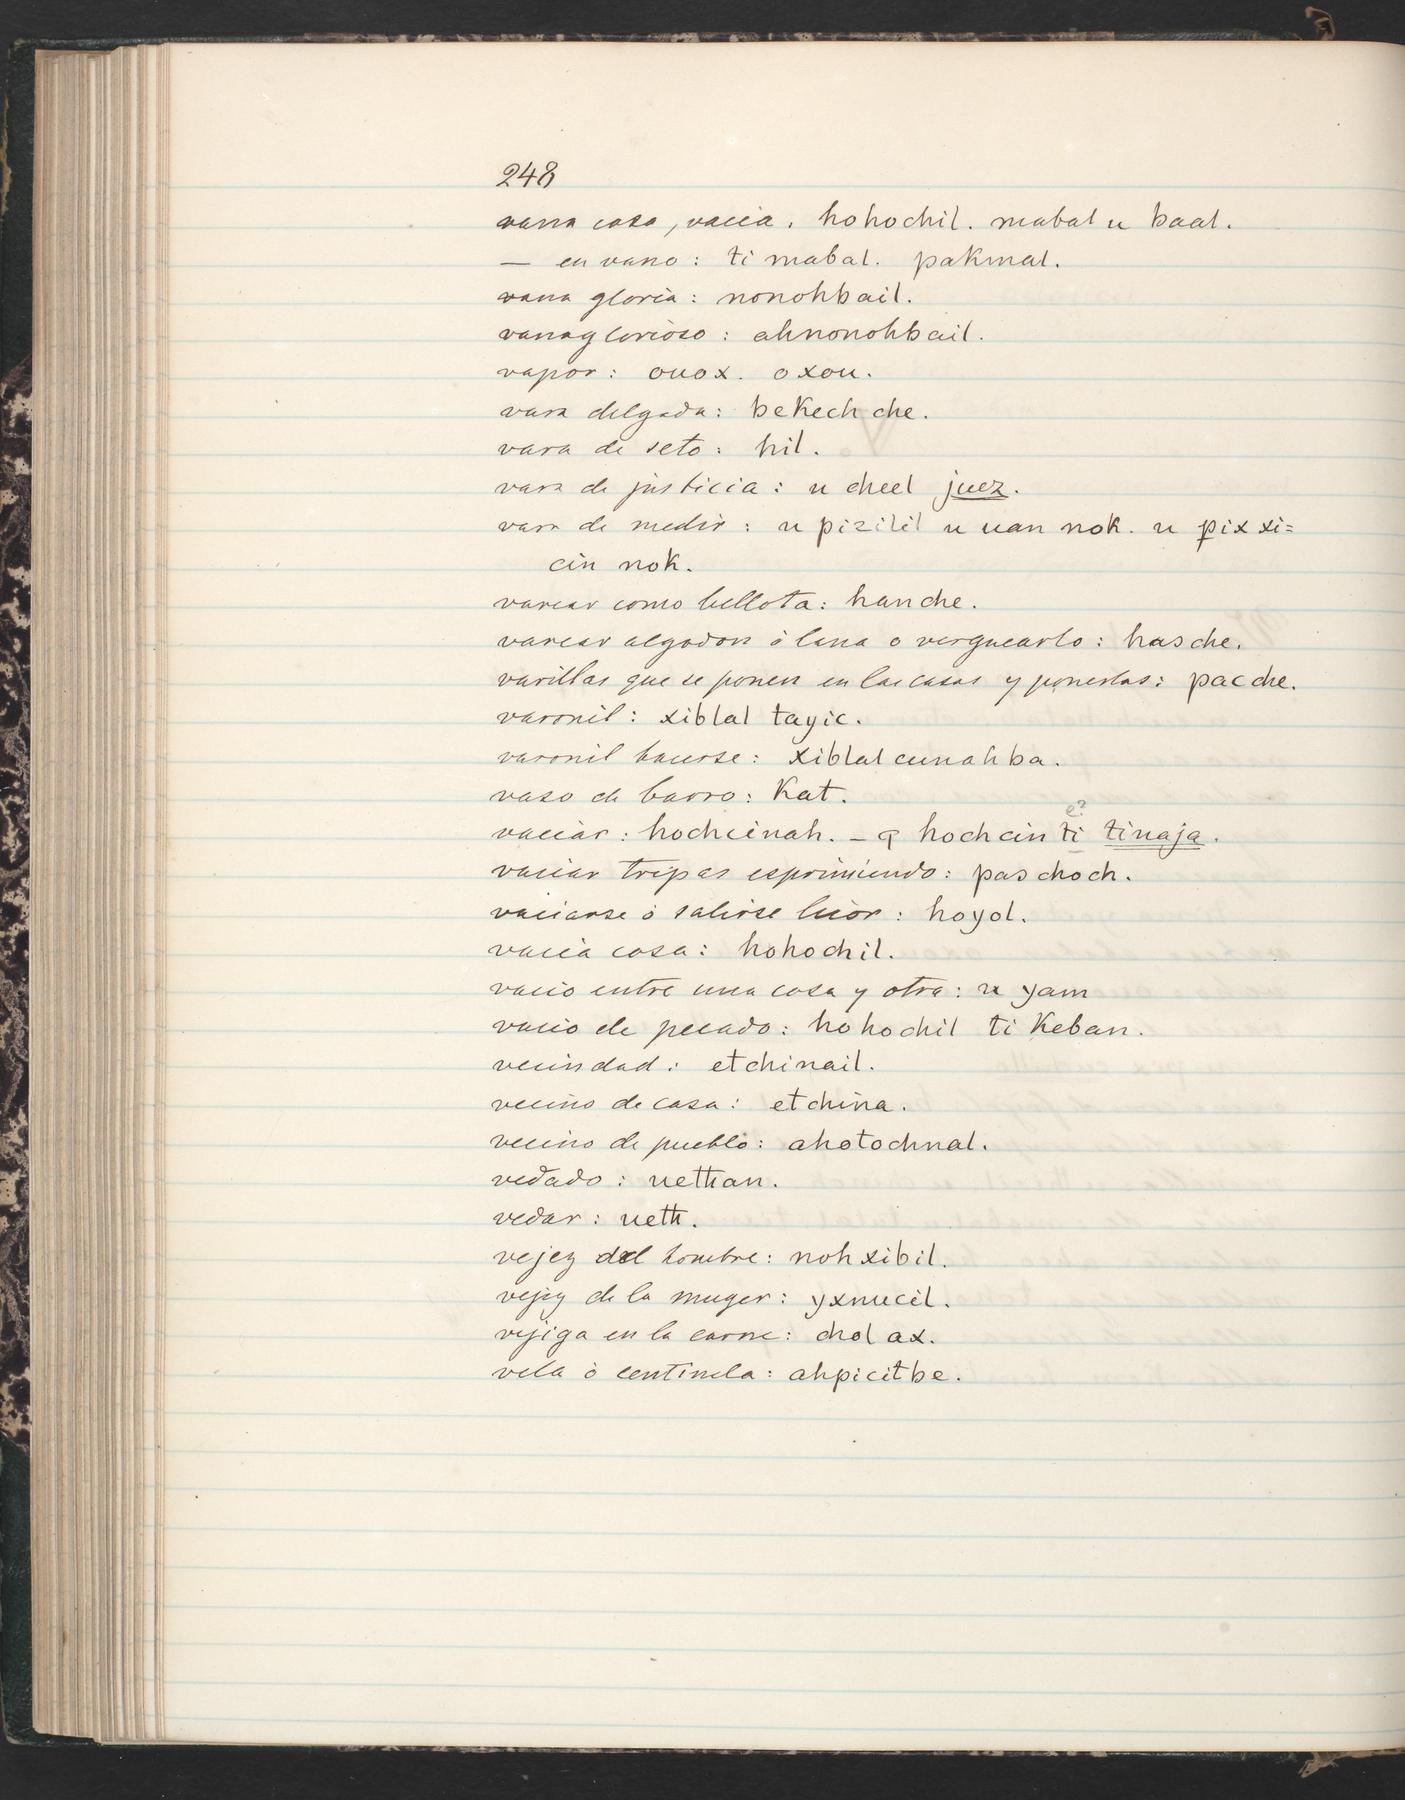 248
vana cosa, vacia. hohochil. mabal u baal.
— en vano: ti mabal. pakmal.
vana gloria: nonohbail.
vanaglorioso: ahnonohbail.
vapor: ouox. oxou.
vara delgada: bekech che.
vara de seto: hil.
vara de justicia: u cheel juez.
vara de medir: u pizilil u uan nok. u pix xi=
cin nok.
varear como bellota: hanche.
varear algodon ò lana o verguearlo: hasche.
varillas que se ponen en las casas y ponerlas: pacche.
varonil: xiblal tayic.
varonil hacerse: xiblalcunahba.
vaso de barro: Kat.
e?
vaciàr: hochcinah. – q hochcin ti tinaja.
vaciar tripas esprimiendo: paschoch.
vaciarse ò salirse licòr: hoyol.
vacia cosa: hohochil.
vacio entre una cosa y otra: u yam
vacio de pecado: hohochil ti Keban.
vecindad: etchinail.
vecino de casa: etchina.
vecino de pueblo: ahotochnal.
vedado: uethan.
vedar: ueth.
vejez del hombre: nohxibil.
vejez de la muger: yxnucil.
vejiga en la carne: chol ax.
vela ò centinela: ahpicitbe.